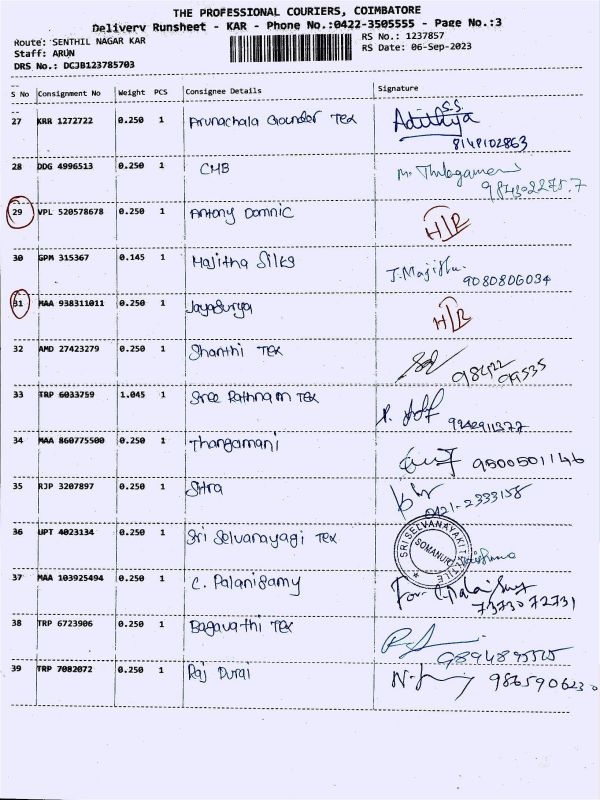 THE PROFESSIONAL COURIERS, COIMBATORE
Delivery Runsheet - KAR - Phone No.:0422-3505555 - Page No.:3
Route: SENTHIL NAGAR KAR RS No.: 1237857
Staff: ARUN RS Date: 06-Sep-2023
DRS No.: DCJB123785703
S No Consignment No Weight PCS Consignee Details Signature
27 KRR 1272722 0.250 1 Arunachala Gounder Tex S.S. Adithya
8148102863
28 DDG 4996513 0.250 1 CMB
29 VPL 520578678 0.250 1 Antony Domnic H/R
30 GPM 315367 0.145 1 Majitha Silks J. Majitha
9080806034
31 MAA 938311011 0.250 1 Jayasurya H/R
32 AMD 27423279 0.250 1 Shanthi Tex
33 TRP 6033759 1.045 1 Sree Rathnam Tex
9942911377
34 MAA 860775500 0.250 1 Thangamani 9500501146
35 RJP 3207897 0.250 1 Sitra
0421-2333158
36 UPT 4023134 0.250 1 Sri Selvanayagi Tex SRI SELVANAYAKI TEXTILE SOMANUR
37 MAA 103925494 0.250 1 C. Palanisamy For
7373072731
38 TRP 6723906 0.250 1 Bagavathi Tex
39 TRP 7082072 0.250 1 Raj Durai 9865906230